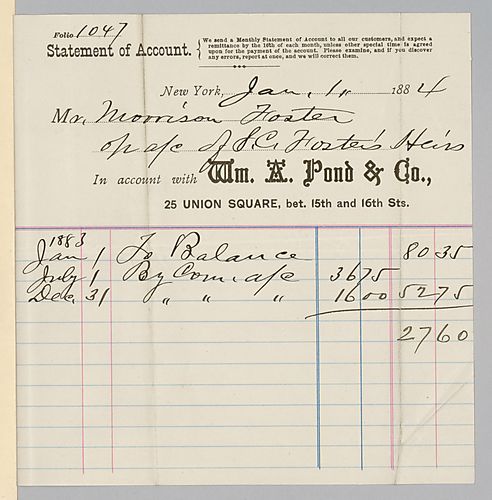 Folio 1047
Statement of Account. { We send a Monthly Statement of Account to all our customers, and expect a
remittance by the 16th of each month, unless other special time is agreed
upon for the payment of the account. Please examine, and if you discover
any errors, report at once, and we will correct them.
New York, Jan. 1" 1884
Mr. Morrison Foster
of a/c of S.C. Foster's Heirs
In account with Wm. A. Pond & Co.,
25 UNION SQUARE, bet. 15th and 16th Sts.
1883
Jan 1 To Balance 80 35
July 1 By Com. a/c 36 75
Dec. 31 " " " 16 00 52 75
27 60